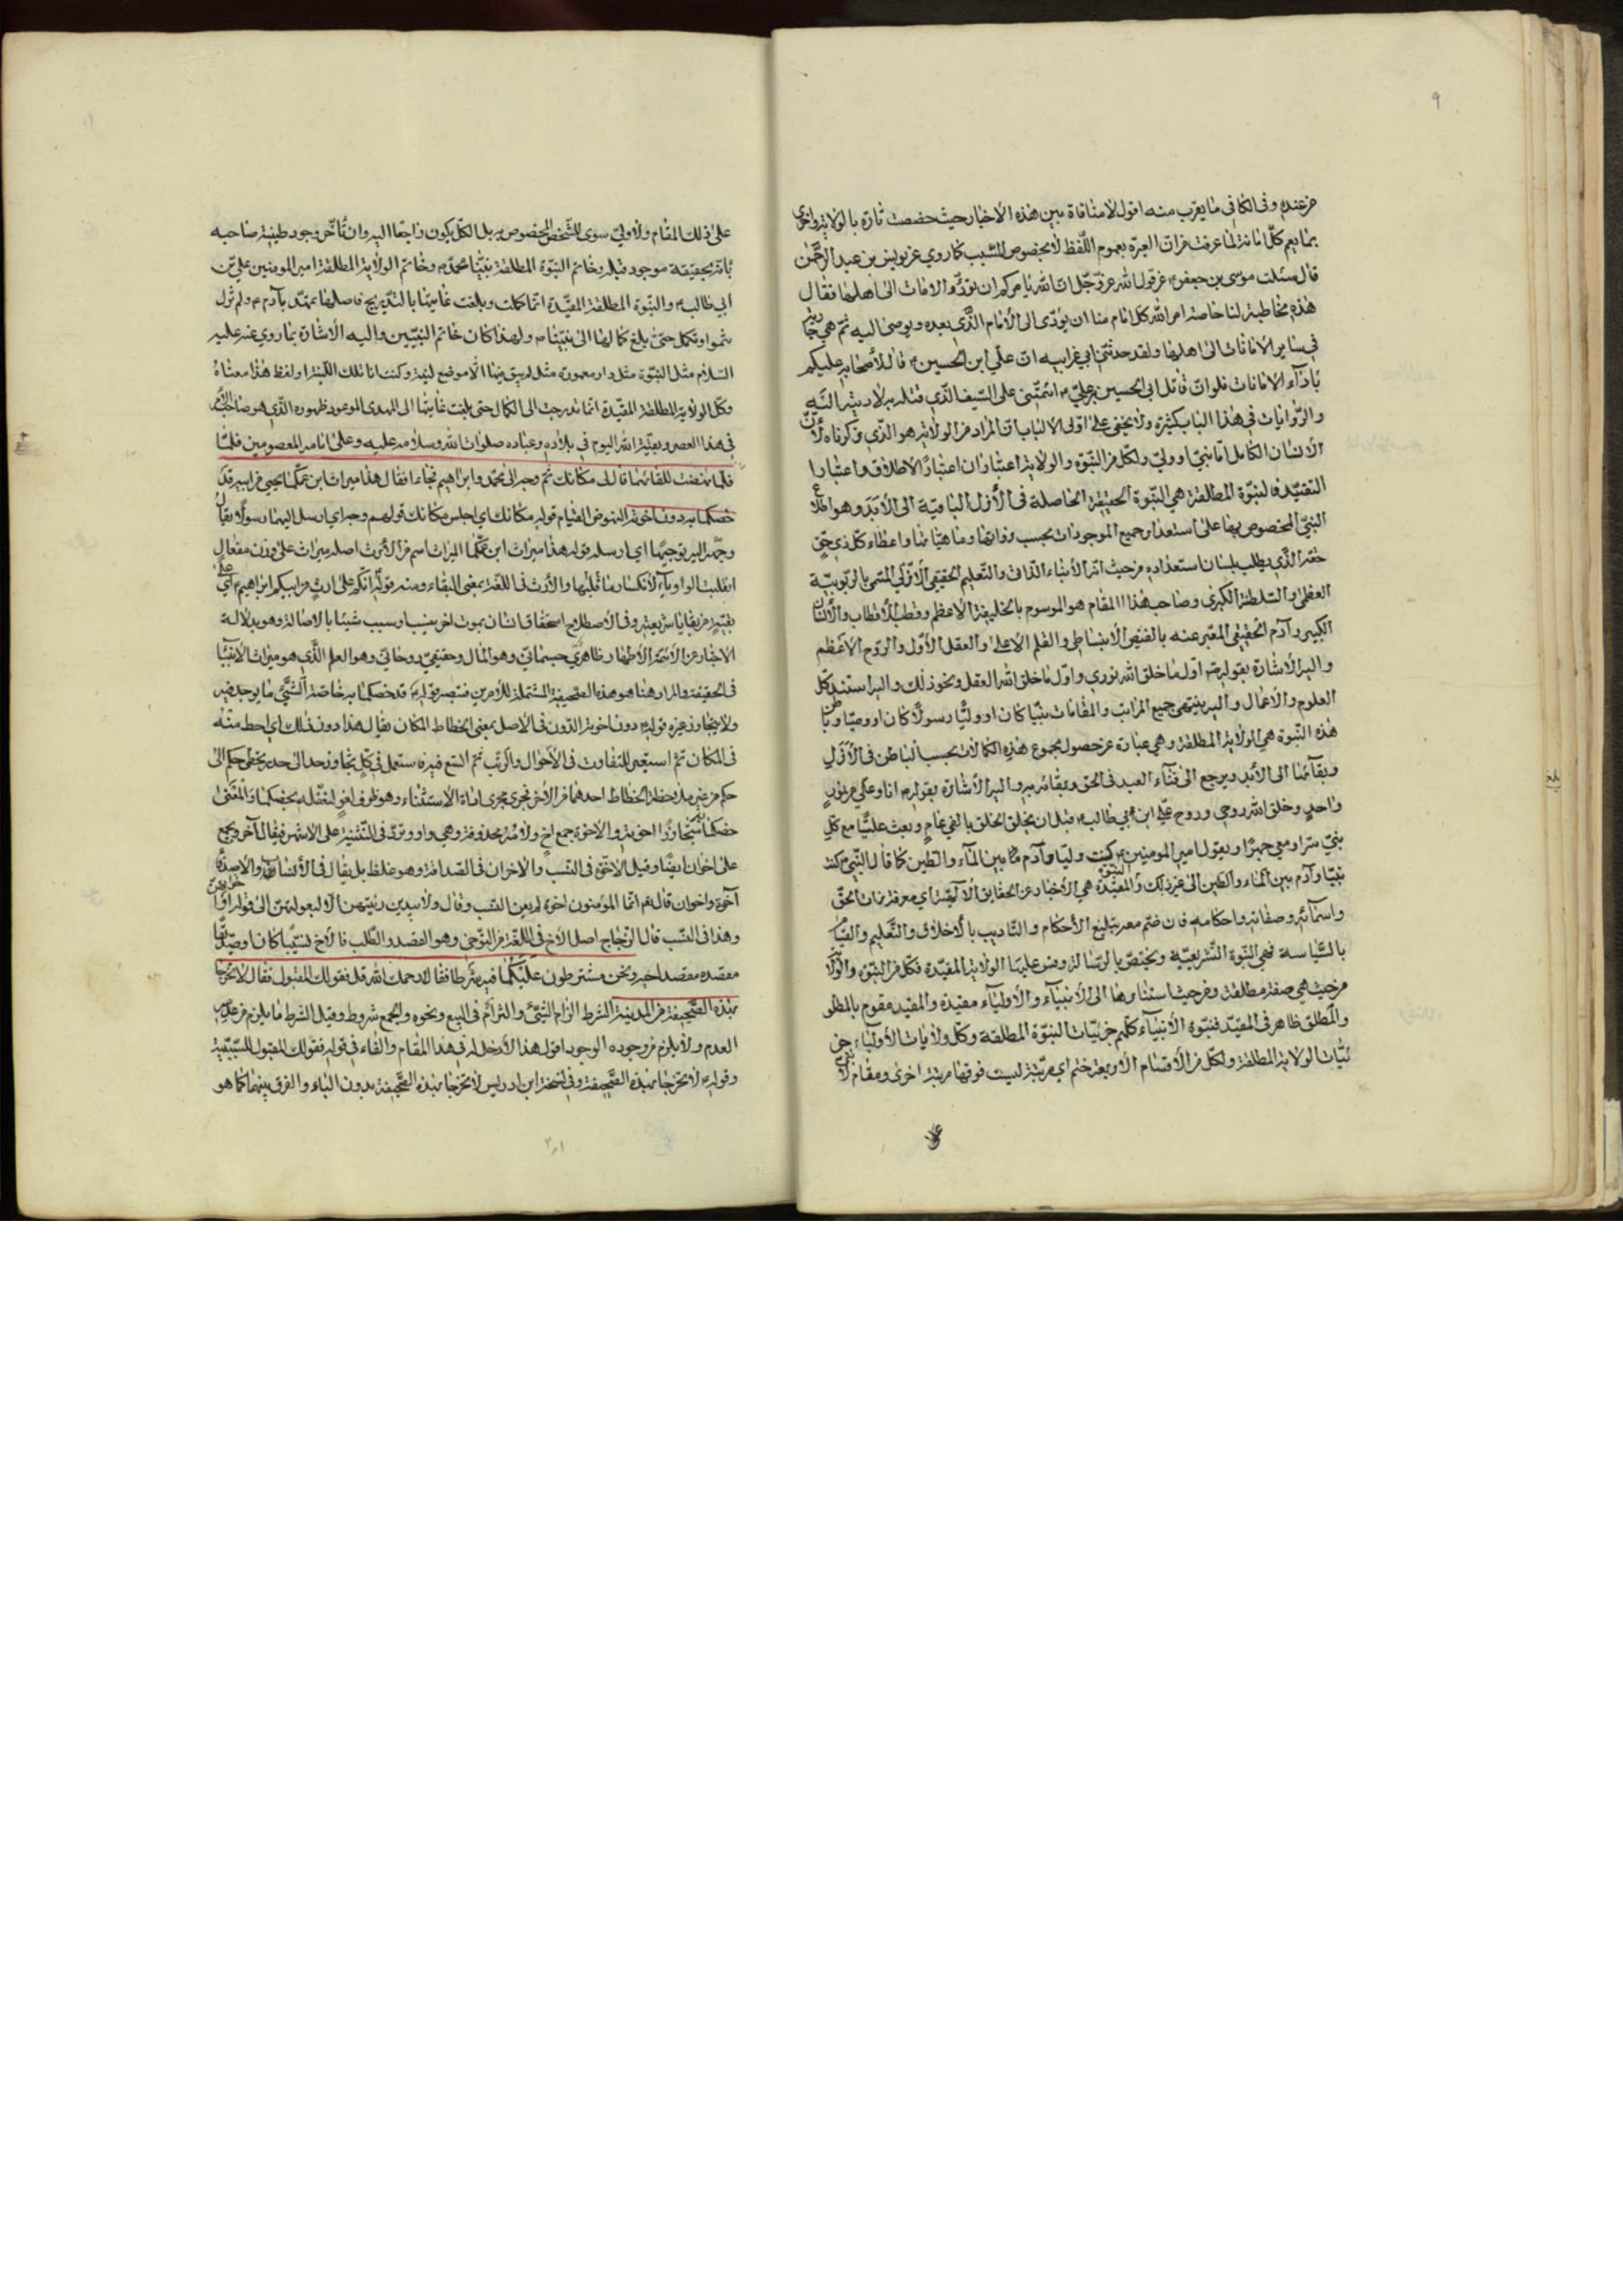 ٩
من عنده وفى الكافى ما يقرب منه اقول لا منافاة بين هذه الاخبار حيث خصصت تارة بالولاية واخرى
بما يعم كل امانة لما عرفت من ان العبرة بعموم اللفظ لا بخصوص السبب كما روي عن يونس بن عبد الرحمن
قال سئلت موسى بن جعفر عن قول الله عز وجل ان الله يامركم ان تؤدوا الامانات الى اهلها فقال
هذه مخاطبة لنا خاصة امر الله كل امام منا ان يؤدى الى الامام الذي بعده ويوصى اليه ثم هي جارية
في ساير الامانات الى اهلها ولقد حدثني ابي عن ابيه ان علي ابن الحسين قال لاصحابه عليكم
باداء الامانات فلو ان قاتل ابى الحسين بن علي ائتمننى على السيف الذي قتله به لاديته اليه
والروايات في هذا الباب كثيرة ولا يخفى على اولى الالباب ان المراد من الولاية هو الذي ذكرناه لان
الانسان الكامل اما نبي او ولي ولكل من النبوة والولاية اعتباران اعتبار الاطلاق واعتبار
التقييد فالنبوة المطلقة هي النبوة الحقيقة الحاصلة في الازل الباقية الى الابد وهو اطلاع
النبي المخصوص بها على استعداد جميع الموجودات بحسب ذواتها وماهياتها واعطاء كل ذي حق
حقه الذي يطلب بلسان استعداده من حيث انه الانباء الذاتى والتعليم الحقيقي الازلي المسمى بالربوبية
العظمى والسلطنة الكبرى وصاحب هذا المقام هو الموسوم بالخليفة الاعظم وقطب الاقطاب والانسان
الكبير وآدم الحقيقي المعبر عنه بالفيض الانبساطي والقلم الاعلى والعقل الاول والروح الاعظم
واليه الاشارة بقوله اول ما خلق الله نوري واول ما خلق الله العقل ونحو ذلك واليه استند كل
العلوم والاعمال واليه ينتهى جميع المراتب والمقامات نبيا كان او وليا رسولا كان او وصيا وباطن
هذه النبوة هي الولاية المطلقة وهي عبارة عن حصول مجموع هذه الكمالات بحسب الباطن فى الازل
وبقائها الى الابد ويرجع الى فناء العبد فى الحق وبقائه به واليه الاشارة بقوله انا وعلي من نور
واحد وخلق الله روحي وروح علي ابن ابي طالب قبل ان يخلق الخلق بالفي عام وبعث عليا مع كل
نبي سرا ومعي جهرا وبقول امير المومنين كنت وليا وآدم بين الماء والطين كما قال النبي كنت
نبيا وآدم بين الماء والطين الى غير ذلك والنبوة المقيدة هي الاخبار عن الحقايق الالهية اي معرفة ذات الحق
واسمائه وصفاته واحكامه فان ضم معه تبليغ الاحكام والتاديب بالاخلاق والتعليم والقيام
بالسياسة فهي النبوة التشريعية ويختص بالرسالة وقس عليها الولاية المقيدة فكل من النبوة والولاية
من حيث هي صفة مطلقة ومن حيث استنادها الى الانبياء والاولياء مقيدة والمقيد مقوم بالمطلق
والمطلق ظاهر فى المقيد فنبوة الانبياء كلهم جزئيات النبوة المطلقة وكل ولايات الاولياء جز
ئيات الولاية المطلقة ولكل من الاقسام الاربعة ختم اي مرتبة ليست فوقها مرتبة اخرى ومقام لا نبي
على ذلك المقام ولا ولي سوى الشخص المخصوص به بل الكل يكون راجعا اليه وان تأخر وجود طينة صاحبه
فانه بحقيقته موجود قبله وخاتم النبوة المطلقة نبينا محمد وخاتم الولاية المطلقة امير المومنين علي بن
ابي طالب والنبوة المطلقة المقيدة انما كملت وبلغت غايتها بالتدريج فاصلها تمهد بآدم ولم تزل
تنمو وتكمل حتى بلغ كمالها الى نبينا ولهذا كان خاتم النبيين واليه الاشارة بما روي عنه عليه
السلام مثل النبوة مثل دار معمورة لم يبق فيها الا موضع لبنة وكنت انا تلك اللبنة او لفظ هذا معناه
وكل الولاية المطلقة المقيدة انما تدرجت الى الكمال حتى بلغت غايتها الى المهدى الموعود ظهوره الذي هو صاحب الامر
في هذا العصر وبقية الله اليوم في بلاده وعباده صلوات الله وسلامه عليه وعلى آبائه المعصومين فلما
فلما نهضت للقائهما قال لى مكانك ثم وجه الى محمد وابراهيم فجاءا فقال هذا ميراث ابن عمكما يحيى من ابيه قد
خصكما به دون اخوته النهوض القيام قوله مكانك اي اجلس مكانك قوله ثم وجه اي ارسل اليهما رسولا يقال
وجهه اليه توجيها اي ارسله قوله هذا ميراث ابن عمكما الميراث اسم من الارث اصله موراث على وزن مفعال
انقلبت الواو ياء لانكسار ما قبلها والارث فى اللغة بمعنى البقاء ومنه قوله انكم على ارث من ابيكم ابراهيم اي على
بقية من بقايا شريعته وفى الاصطلاح استحقاق انسان بموت اخر بنسب او سبب شيئا بالاصالة وهو بدلالة
الاخبار عن الائمة الاطهار ظاهري جسمانى وهو المال وحقيقي روحاني وهو العلم الذي هو ميراث الانبياء
فى الحقيقة والمراد هنا هو هذه الصحيفة المشتملة للامرين فتبصر قوله قد خصكما به خاصة الشئ ما يوجد فيه
ولا يتجاوز غيره قوله دون اخوته الدون فى الاصل بمعنى انحطاط المكان يقال هذا دون ذلك اي احط منه
فى المكان ثم استعير للتفاوت فى الاحوال والرتب ثم اتسع فيه فاستعمل فى كل تجاوز حد الى حد وتخطى حكم الى
حكم من غير ملاحظة انحطاط احدهما من الاخر فجرى مجرى اداة الاستثناء وهو ظرف لغو لتعلقه بخصكما والمعنى
خصكما متجاوزا اخوته والاخوة جمع اخ ولامه محذوفة وهي واو وترد فى التثنية على الاشهر فيقال اخوان ويجمع
على اخوان ايضا وقيل الاخوة فى النسب والاخوان فى الصداقة وهو غلط بل يقال فى الانسان والاصدقاء
اخوة واخوان قال تعالى انما المؤمنون اخوة لم يعن النسب وقال ولا يبدين زينتهن الا لبعولتهن الى قوله او اخوانهن
وهذا فى النسب قال الزجاج اصل الاخ فى اللغة من التوخى وهو القصد والطلب فالاخ نسيبا كان او صديقا
مقصده مقصد اخيه ونحن مشترطون عليكما فيه شرطا فقالا رحمك الله قل فقولك المقبول فقال لا تخرجا
بهذه الصحيفة من المدينة الشرط الزام الشئ والتزامه فى البيع ونحوه والجمع شروط وقيل الشرط ما يلزم من عدمه
العدم ولا يلزم من وجوده الوجود اقول هذا لا دخل له فى هذا المقام والفاء فى قوله فقولك المقبول للسببية
وقوله لا تخرجا بهذه الصحيفة وفى نسخة ابن ادريس لا تخرجا هذه الصحيفة بدون الباء والفرق بينهما كما هو